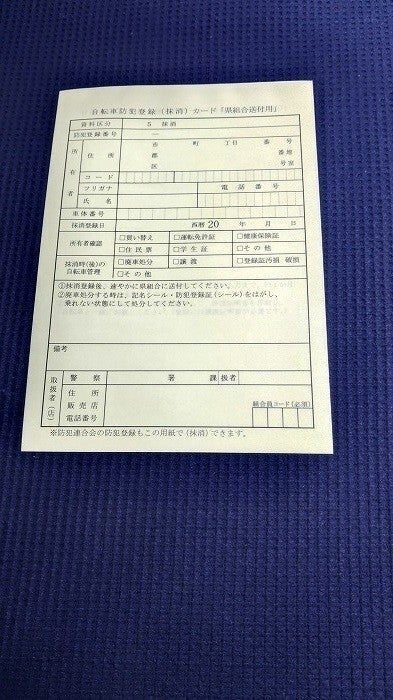 自転車防犯登録(抹消)カード「県組合送付用」
資料区分 5 抹消
防犯登録番号 ー
所有者 住所 市 町 丁目 番 号
郡 番地
区 号室
コード
フリガナ 電話番号
氏名
車体番号
抹消登録日 西暦 20 年 月 日
所有者確認 □買い替え □運転免許証 □健康保険証
□住民票 □学生証 □その他
抹消時(後)の自転車管理 □廃車処分 □譲渡 □登録証汚損 破損
□その他
①抹消登録後、速やかに県組合に送付してください。
②廃車処分する時は、記名シール・防犯登録証(シール)をはがし、
乗れない状態にして処分してください。
備考
取扱者(店) 警察 署 課 扱者
住所 組合員コード(必須)
販売店
電話番号
※防犯連合会の防犯登録もこの用紙で(抹消)できます。